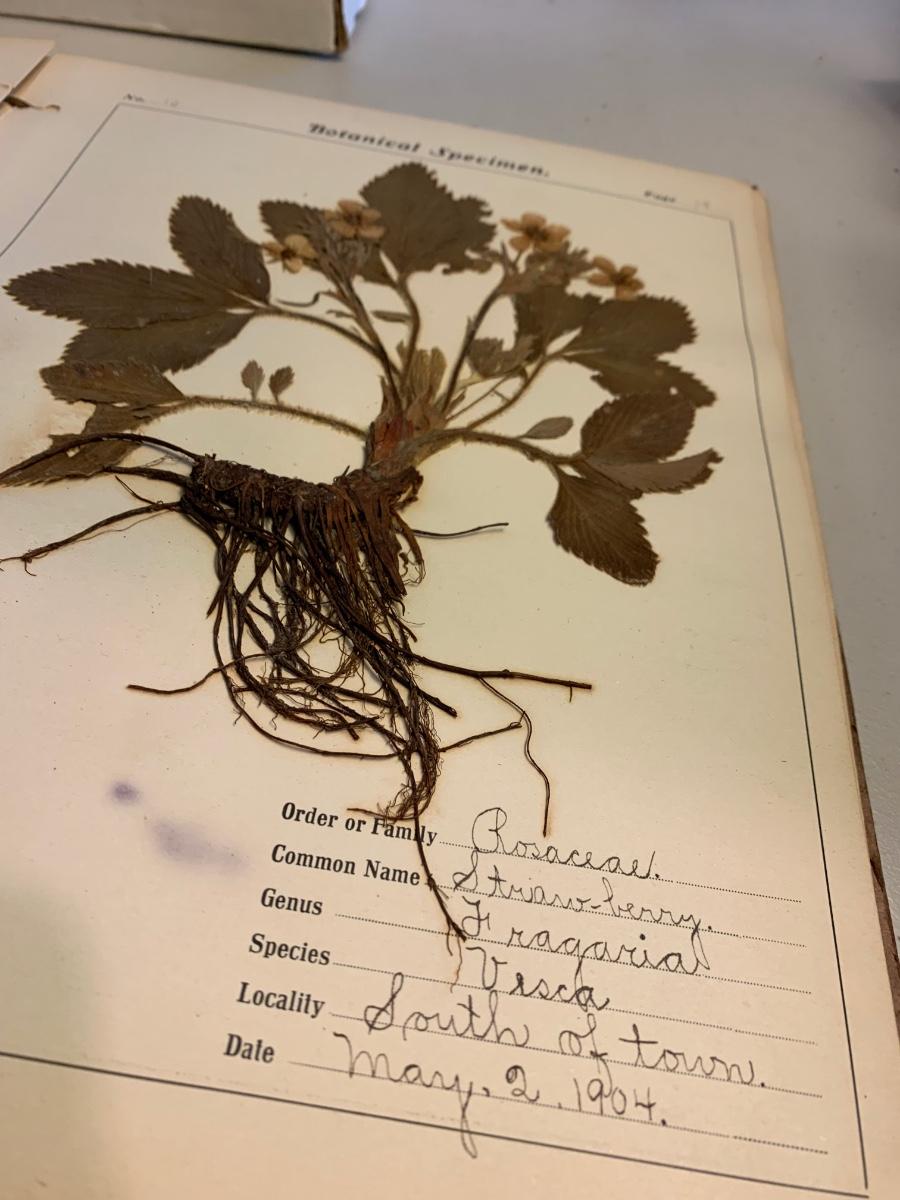 No.
Botanical Specimen.
Page
Order or Family Rosaceae.
Common Name Straw-berry.
Genus Fragaria
Species Vesca
Locality South of town.
Date May. 2. 1904.